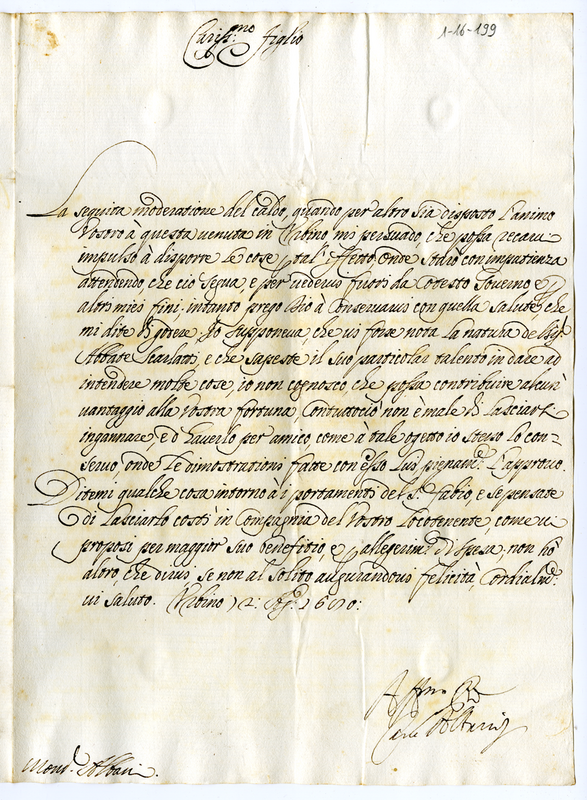 Cariss.mo figlio
1-16-199
La seguita moderatione del caldo, quando per altro sia disposto l'animo
Vostro à questa venuta in Urbino mi persuado, che possa recarui
impulso à disporre le cose à tal' effetto, onde starò con impatienza
attendendo che ciò segua, e per vederui fuori da cotesto Gouerno e p
altri miei fini, intanto prego Dio à conseruarui con quella salute, che
mi dite di godere. Io supponeva, che vi fosse nota la natura del Sig.
Abbate Scarlatti, e che sapeste il suo particolar talento in dare ad
intendere molte cose, io non cognosco che possa contribuire alcun
vantaggio alla vostra fortuna. Contuttociò non è male di lasciarsi
ingannare, e d'hauerlo per amico, come à tale ogetto io stesso lo con-
seruo, onde le dimostrationi fatte con esso Lui pienam.te l'approuo.
Ditemi qualche cosa intorno à i portamenti del S. Fabio, e se pensate
di lasciarlo costì in Compagnia del Vostro Locotenente, come vi
proposi per maggior suo benefitio, e allegerim.to di spesa, non hò
altro che dirui, se non al solito augurandoui felicità, cordialm.te
vi saluto. Urbino
Carlo Albani
Mons.r Albani.